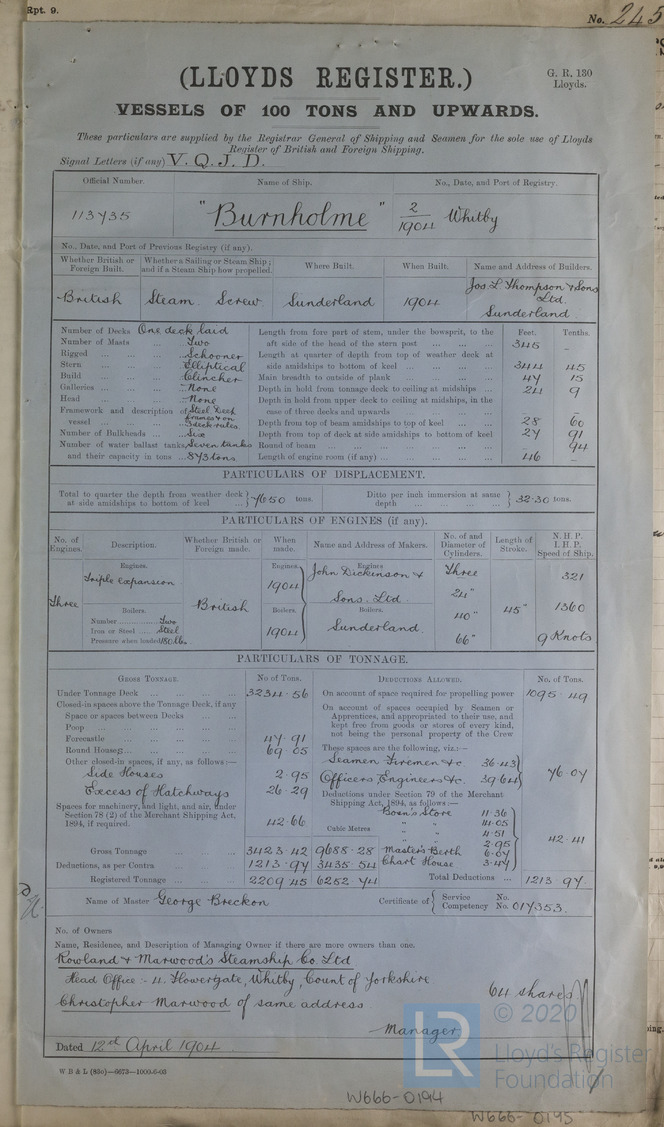 Rpt. 9.
No. 245
(LLOYDS REGISTER.)
G. R. 130
Lloyds.
VESSELS OF 100 TONS AND UPWARDS.
These particulars are supplied by the Registrar General of Shipping and Seamen for the sole use of Lloyds
Register of British and Foreign Shipping.
Signal Letters (if any) V. Q. J. D.
Official Number. Name of Ship. No., Date, and Port of Registry.
113735 "Burnholme" 2/1904 Whitby
No., Date, and Port of Previous Registry (if any).
Whether British or Foreign Built. Whether a Sailing or Steam Ship; and if a Steam Ship how propelled. Where Built. When Built. Name and Address of Builders.
British Steam Screw. Sunderland 1904 Jos. L. Thompson & Sons Ltd. Sunderland
Feet. Tenths.
Number of Decks One deck laid
Number of Masts ... Two
Rigged ... Schooner
Stern ... Elliptical
Build ... Clincher
Galleries ... None
Head ... None
Framework and description of vessel ... Steel Deep frames on 3 deck rules.
Number of Bulkheads ... Six
Number of water ballast tanks, Seven tanks
and their capacity in tons ... 873 tons.
Length from fore part of stem, under the bowsprit, to the
aft side of the head of the stern post ... 345 -
Length at quarter of depth from top of weather deck at
side amidships to bottom of keel ... 344 45
Main breadth to outside of plank ... 47 15
Depth in hold from tonnage deck to ceiling at midships ... 24 9
Depth in hold from upper deck to ceiling at midships, in the
case of three decks and upwards ... - -
Depth from top of beam amidships to top of keel ... 28 60
Depth from top of deck at side amidships to bottom of keel 27 91
Round of beam ... 94
Length of engine room (if any) ... 46 -
PARTICULARS OF DISPLACEMENT.
Total to quarter the depth from weather deck at side amidships to bottom of keel ... 7650 tons.
Ditto per inch immersion at same depth ... 32.30 tons.
PARTICULARS OF ENGINES (if any).
No. of Engines. Description. Whether British or Foreign made. When made. Name and Address of Makers. No. of and Diameter of Cylinders. Length of Stroke. N. H. P. I. H. P. Speed of Ship.
Engines. Engines. Engines
Triple expansion 1904 John Dickinson & Sons. Ltd. Three 24" 321
Three British 40" 45" 1360
Boilers. Boilers. Boilers.
Number ... Two
Iron or Steel ... Steel
Pressure when loaded 180 lbs.
1904 Sunderland. 66" 9 Knots
PARTICULARS OF TONNAGE.
GROSS TONNAGE. No of Tons. DEDUCTIONS ALLOWED. No. of Tons.
Under Tonnage Deck ... 3234.56
Closed-in spaces above the Tonnage Deck, if any
Space or spaces between Decks ...
Poop ...
Forecastle ... 47.91
Round Houses ... 69.05
Other closed-in spaces, if any, as follows:—
Side Houses 2.95
Excess of Hatchways 26.29
Spaces for machinery, and light, and air, under
Section 78 (2) of the Merchant Shipping Act,
1894, if required. 42.66
Cubic Metres
Gross Tonnage ... 3423.42 9688.28
Deductions, as per Contra ... 1213.97 3435.54
Registered Tonnage ... 2209.45 6252.74
On account of space required for propelling power 1095.49
On account of spaces occupied by Seamen or
Apprentices, and appropriated to their use, and
kept free from goods or stores of every kind,
not being the personal property of the Crew
These spaces are the following, viz.:—
Seamen Firemen &c 36.43
Officers Engineers &c. 39.64
76.07
Deductions under Section 79 of the Merchant
Shipping Act, 1894, as follows:—
Bosn's Store 11.36
" " 14.05
" " 4.51
" " 2.95
Master's Berth 6.07
Chart House 3.47
42.41
Total Deductions ... 1213 97
Name of Master George Breckon
Certificate of { Service No. Competency No. 017353.
No. of Owners
Name, Residence, and Description of Managing Owner if there are more owners than one.
Rowland & Marwood's Steamship Co. Ltd
Head Office :- 11. Flowergate, Whitby, County of Yorkshire
64 shares
Christopher Marwood of same address
Manager
Dated 12th April 1904.
W B & L (83o)—6673—1000-6-03
© 2020
LR Lloyd's Register
Foundation
W666-0194
W666-0195